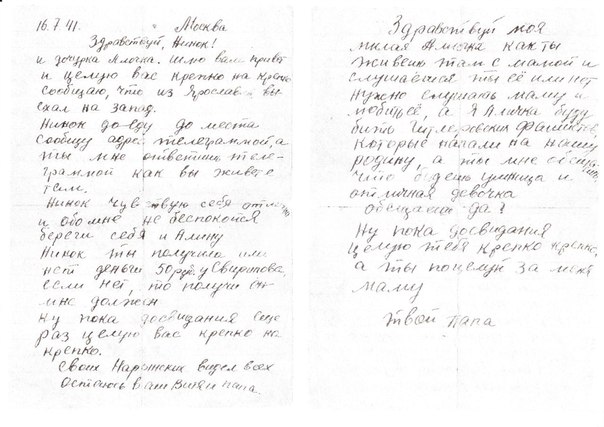 16.7.41. Москва
Здравствуй, Нинок!
и дочурка Алочка. Шлю вам привет
и целую вас крепко на крепко
сообщаю, что из Ярославля вы-
ехал на запад.
Нинок доеду до места
сообщу адрес телеграммой, а
ты мне ответишь теле-
граммой как вы живете
там.
Нинок чувствую себя отлично
и обо мне не беспокойся
береги себя и Алину
Нинок ты получила или
нет деньги 50 руб. у Свиридова,
если нет, то получи он
мне должен
ну пока досвидания еще
раз целую вас крепко на
крепко.
Своих видел всех
остаюсь ваш и папа.
Здравствуй моя
милая Алочка как ты
живешь там с мамой и
слушаешся ты её или нет
нужно слушать маму и
любить её, а я Алочка буду
бить Гитлеровских фашистов,
которые напали на нашу
родину, а ты мне обещай
что будешь умница и
отличная девочка
обещаешь да?
Ну пока досвидания
целую тебя крепко крепко,
а ты поцелуй за меня
маму
твой папа